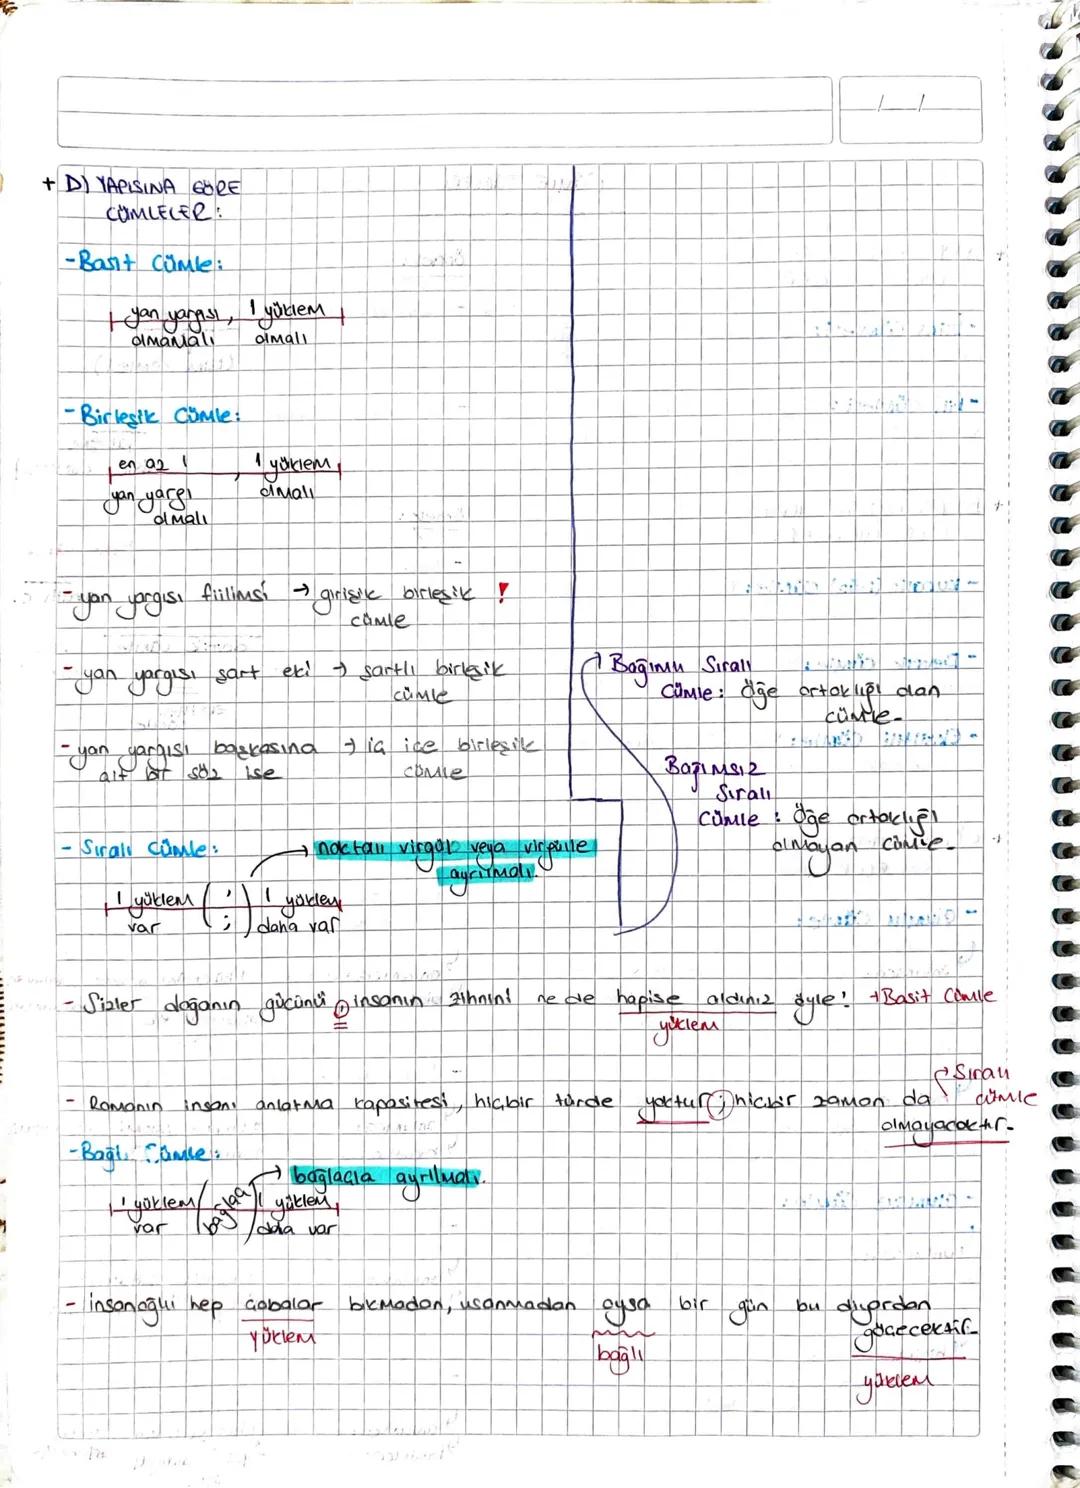 / /
+ D) YAPISINA GÖRE
CÜMLELER:
- Basit Cümle:
yan yargısı, 1 yüklem
olmamalı olmalı
- Birleşik Cümle:
en az 1 , 1 yüklem
yan yargı olmalı
olmalı
- yan yargısı fiilimsi → girişik birleşik !
cümle
- yan yargısı şart eki → şartlı birleşik
cümle
- yan yargısı başkasına → iç içe birleşik
ait bir söz ise cümle
Bağımlı Sıralı
Cümle: öğe ortaklığı olan
cümle.
Bağımsız
Sıralı
Cümle: öğe ortaklığı
olmayan cümle.
- Sıralı Cümle: → noktalı virgül veya virgülle
ayrılmalı.
1 yüklem ( , ) 1 yüklem
var ( ; ) daha var
- Sizler doğanın gücünü , insanın zihnini ne de hapise aldınız öyle! → Basit Cümle
yüklem
- Romanın insanı anlatma kapasitesi, hiçbir türde yoktur ; hiçbir zaman da
olmayacaktır.
Sıralı
cümle
- Bağlı Cümle:
→ bağlaçla ayrılmalı.
1 yüklem (bağlaç) 1 yüklem
var daha var
- insanoğlu hep çabalar bıkmadan, usanmadan oysa bir gün bu diyardan
göçecektir.
yüklem bağlı yüklem